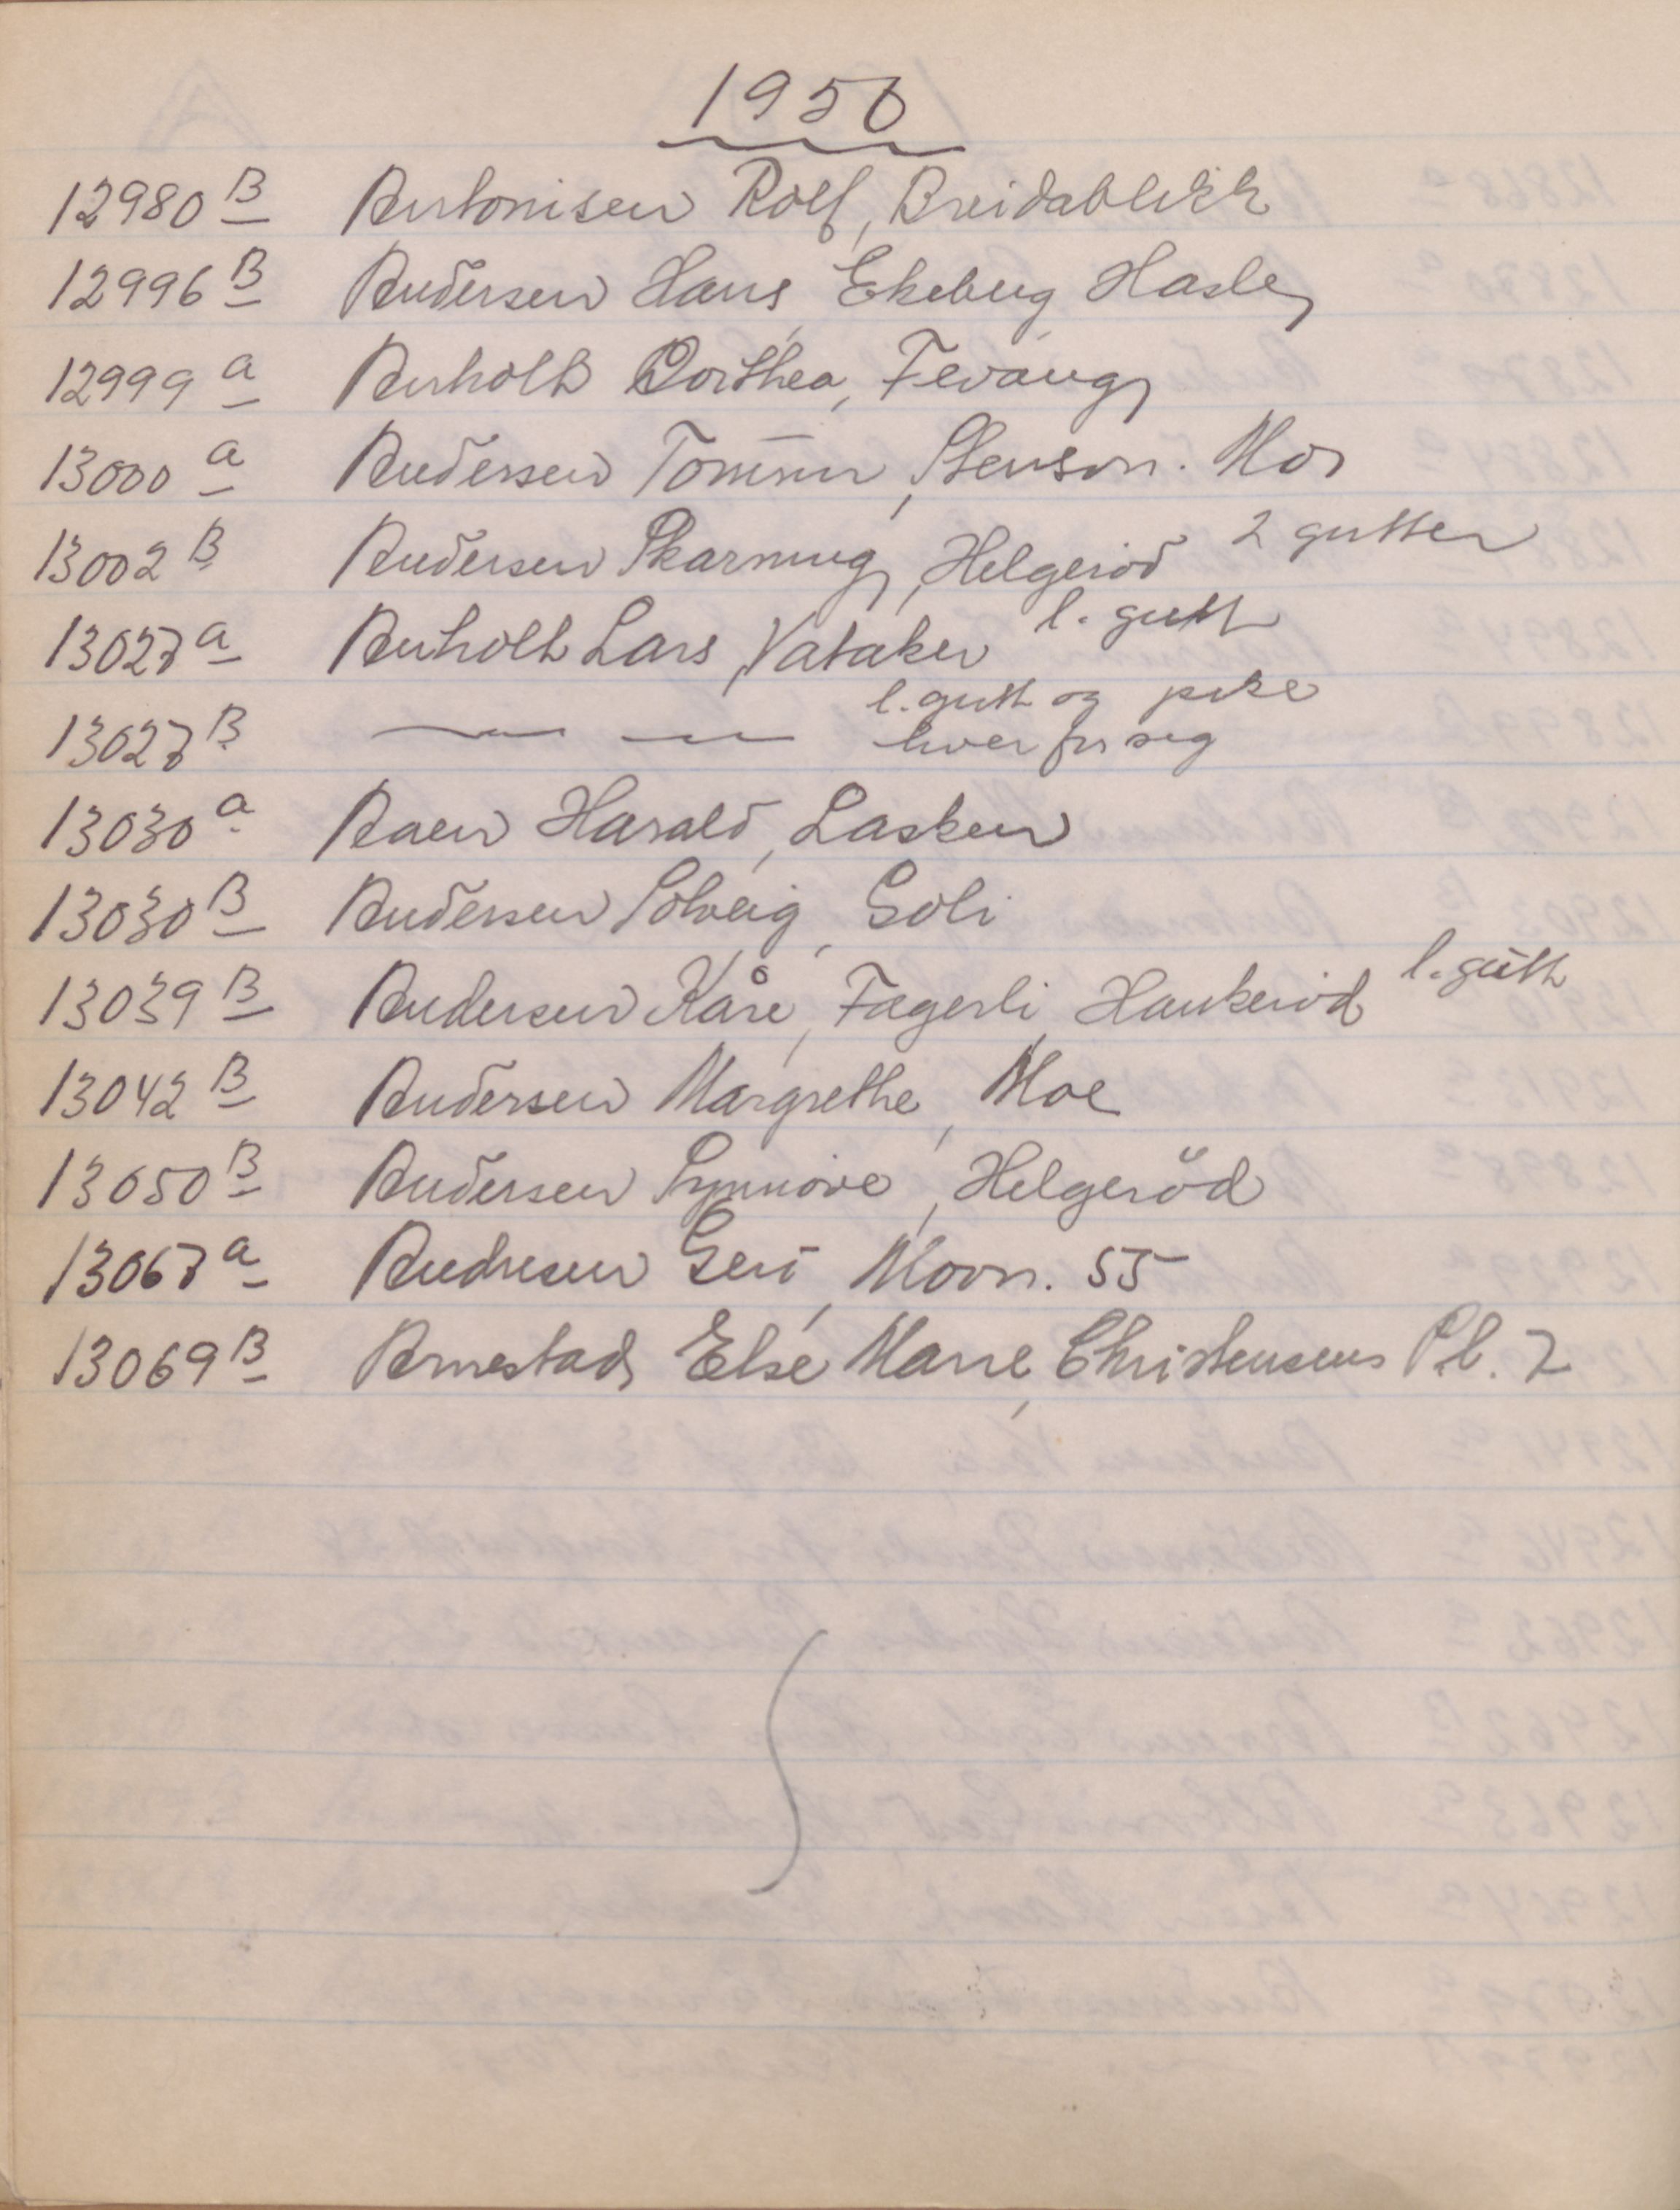 1956
12980 B Antonisen Rolf, Breidablikk
12996 B Andersen Hans, Ekeberg Hasle
12999 a Anholt Dorthea, Fevang
13000 a Andersen Tommr, Stenson. Mor
13002 B Andersen Skarning, Helgerød 2 gutter
13027 a Anholt Lars, Vataker l. gutt
13027 B — — l. gutt og pike
hver for seg
13030 a Aaen Harald, Lasken
13030 B Andersen Solveig, Soli
13039 B Andersen Kåre, Fagerli, Haukerød l. gutt
13042 B Andersen Margrethe, Moe
13050 B Andersen Synnøve, Helgerød
13067 a Andresen Gerd, Movn. 55
13069 B Arnestad, Else Marie, Christensens Pl. 7